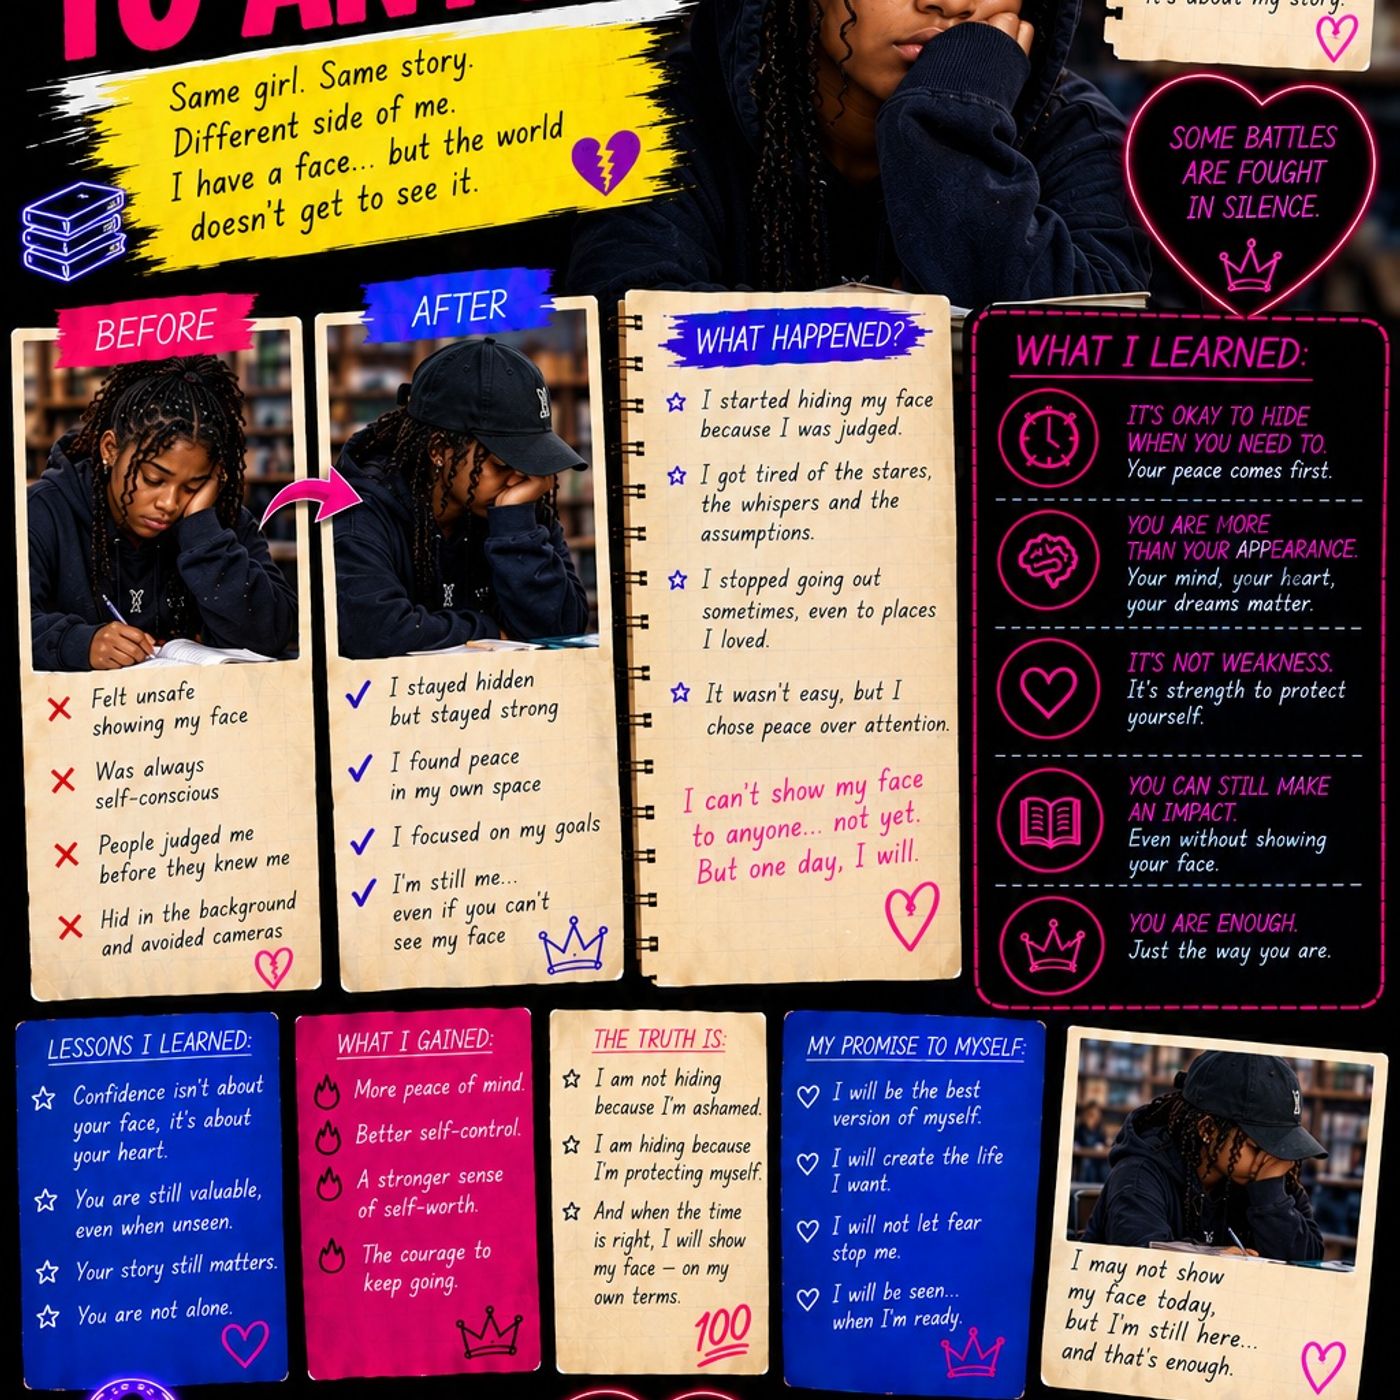 TO ANY
Same girl. Same story.
Different side of me.
I have a face... but the world
doesn't get to see it.
It's about my story.
SOME BATTLES
ARE FOUGHT
IN SILENCE.
BEFORE
Felt unsafe
showing my face
Was always
self-conscious
People judged me
before they knew me
Hid in the background
and avoided cameras
AFTER
I stayed hidden
but stayed strong
I found peace
in my own space
I focused on my goals
I'm still me...
even if you can't
see my face
WHAT HAPPENED?
I started hiding my face
because I was judged.
I got tired of the stares,
the whispers and the
assumptions.
I stopped going out
sometimes, even to places
I loved.
It wasn't easy, but I
chose peace over attention.
I can't show my face
to anyone... not yet.
But one day, I will.
WHAT I LEARNED:
IT'S OKAY TO HIDE
WHEN YOU NEED TO.
Your peace comes first.
YOU ARE MORE
THAN YOUR APPEARANCE.
Your mind, your heart,
your dreams matter.
IT'S NOT WEAKNESS.
It's strength to protect
yourself.
YOU CAN STILL MAKE
AN IMPACT.
Even without showing
your face.
YOU ARE ENOUGH.
Just the way you are.
LESSONS I LEARNED:
Confidence isn't about
your face, it's about
your heart.
You are still valuable,
even when unseen.
Your story still matters.
You are not alone.
WHAT I GAINED:
More peace of mind.
Better self-control.
A stronger sense
of self-worth.
The courage to
keep going.
THE TRUTH IS:
I am not hiding
because I'm ashamed.
I am hiding because
I'm protecting myself.
And when the time
is right, I will show
my face – on my
own terms.
100
MY PROMISE TO MYSELF:
I will be the best
version of myself.
I will create the life
I want.
I will not let fear
stop me.
I will be seen...
when I'm ready.
I may not show
my face today,
but I'm still here...
and that's enough.